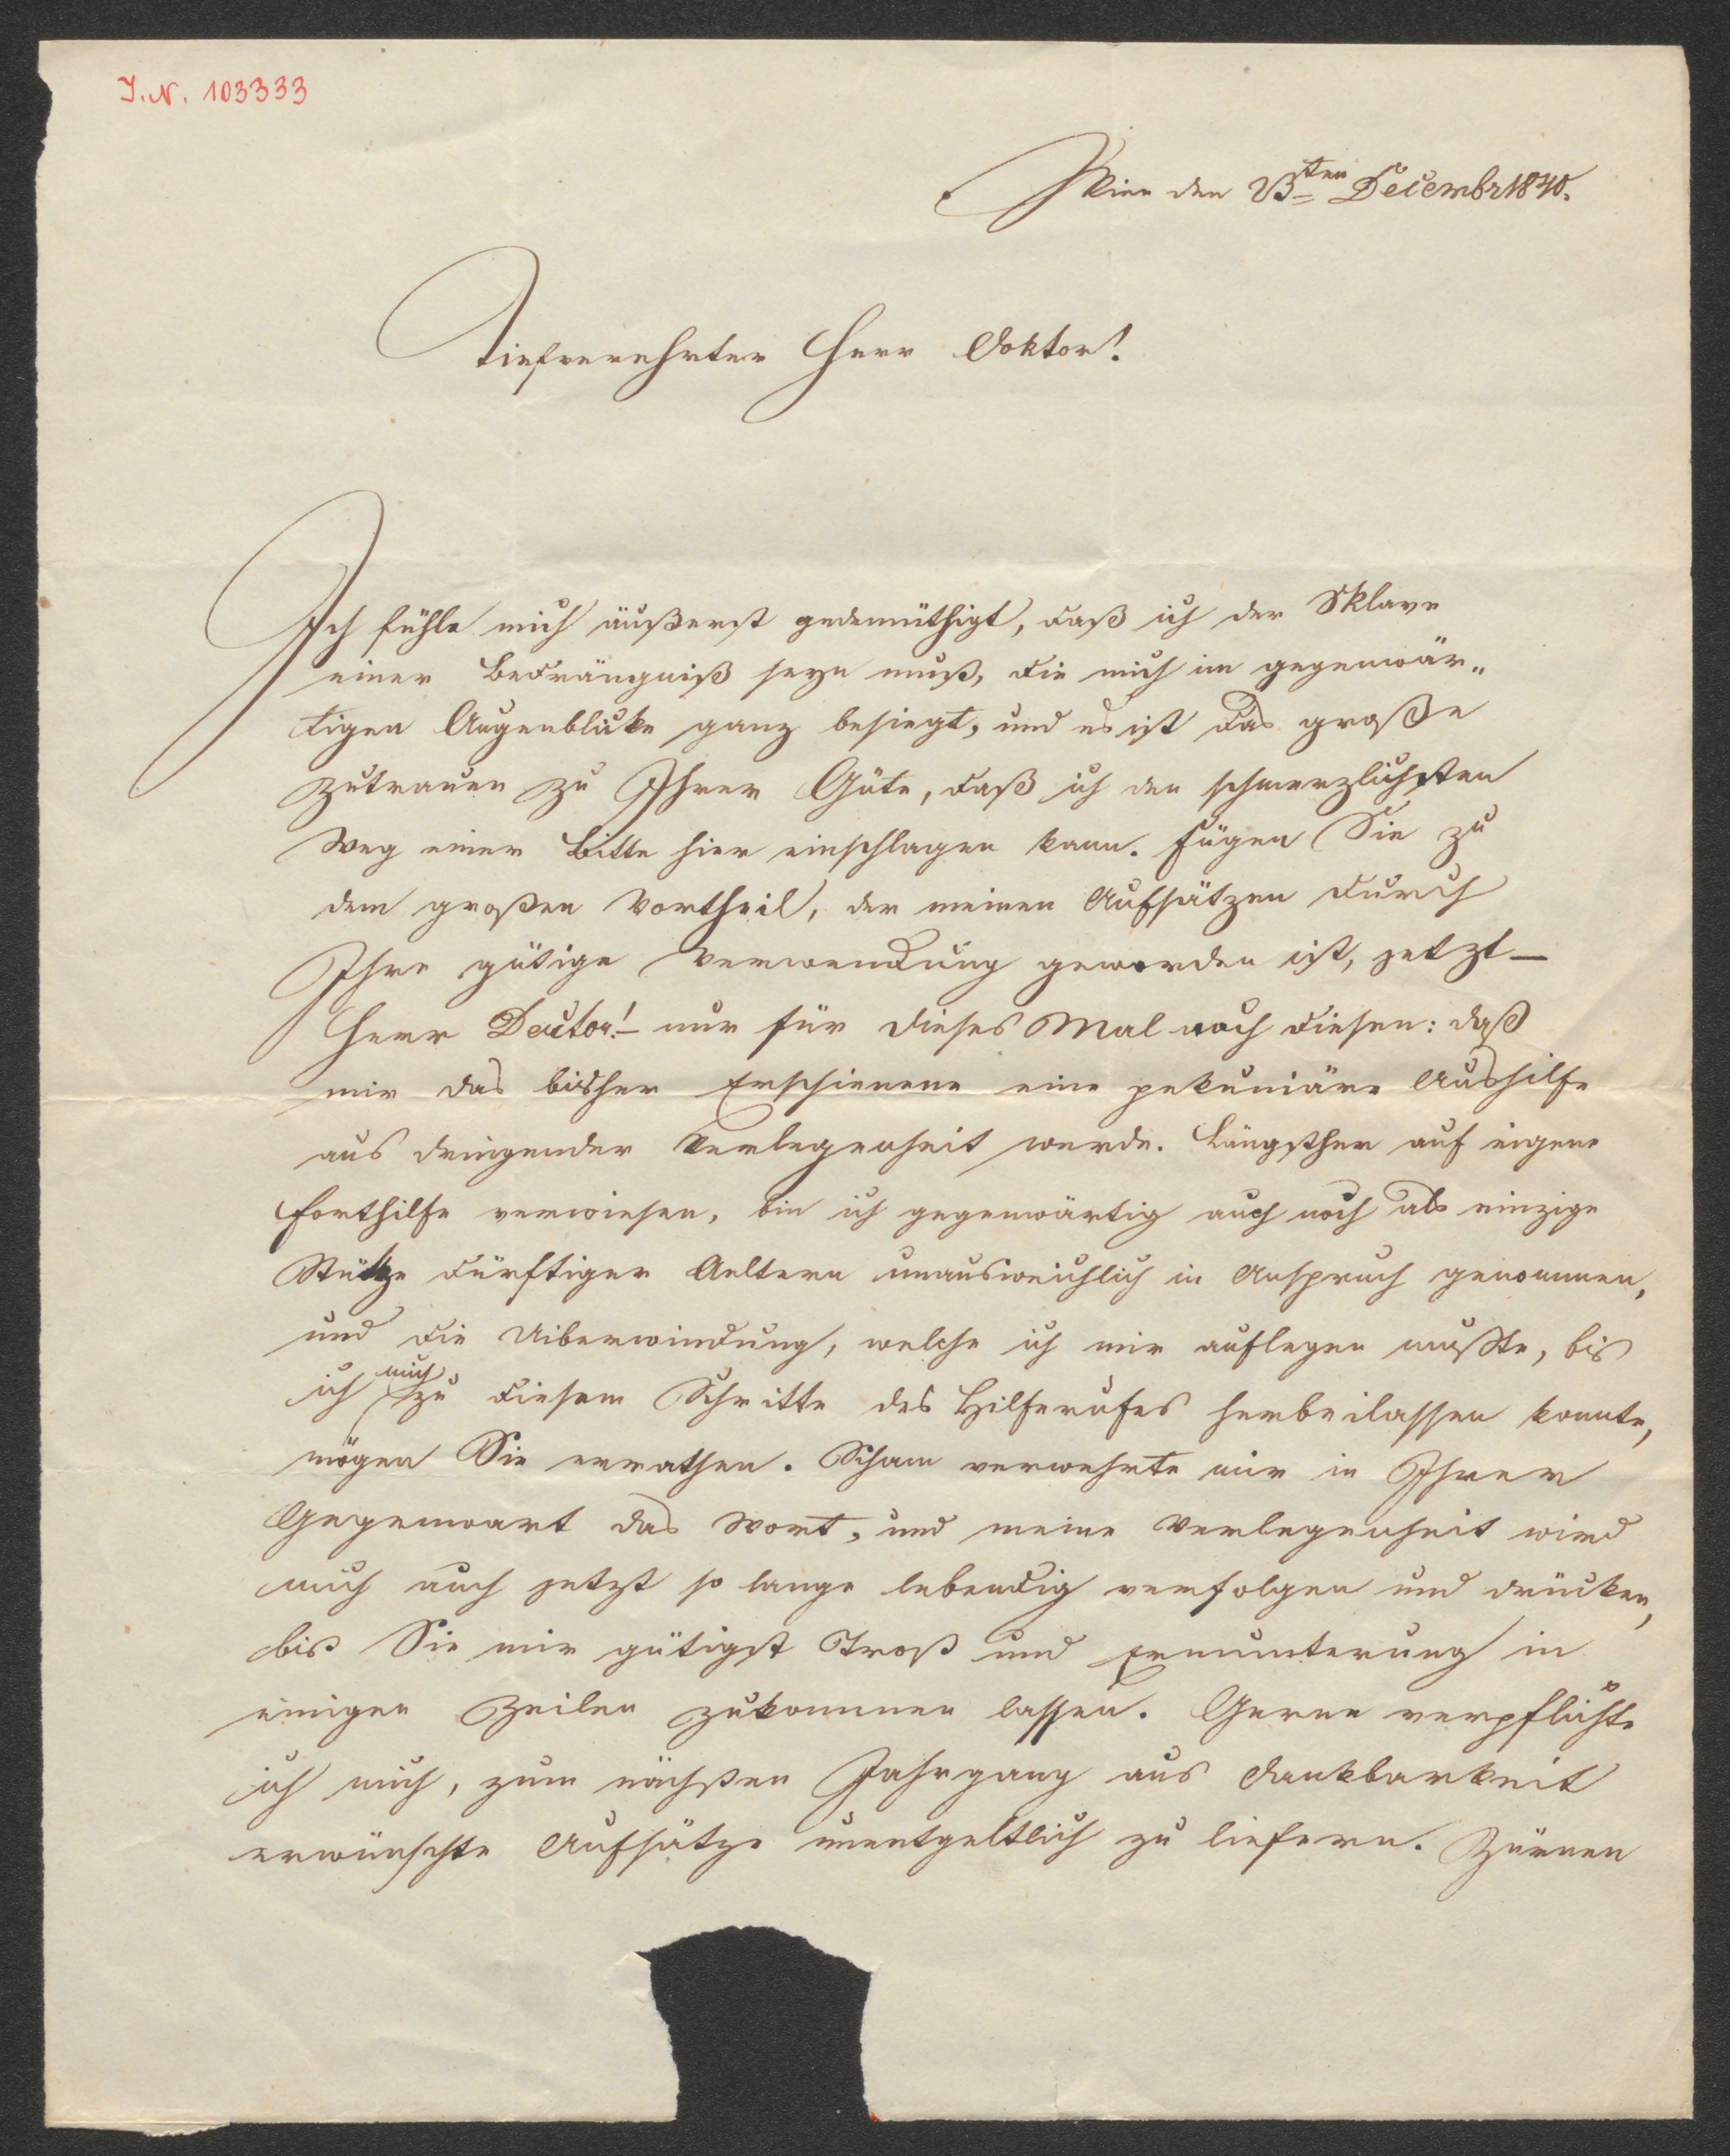 I. N. 103333
Wien den 23ten Decembr 1840.
Tiefverehrter Herr Doktor!
Ich fühle mich äußerst gedemüthigt, daß ich der Sklave
einer Bedrängniß seyn muß, die mich im gegenwär„
tigen Augenblicke ganz besiegt, und es ist das große
Zutrauen zu Ihrer Güte, daß ich den schmerzlichsten
Weg einer Bitte hier einschlagen kann. Fügen Sie zu
dem großen Vortheil, der meinen Aufsätzen durch
Ihre gütige Verwendung geworden ist, jetzt —
Herr Doctor! — nur für dieses Mal noch diesen: daß
mir das bisher Erschienene eine pekuniäre Aushilfe
aus dringender Verlegenheit werde. Längsther auf eigene
Forthilfe verwiesen, bin ich gegenwärtig auch noch als einzige
Stütze dürftiger Aeltern unausweichlich in Anspruch genommen,
und die Uiberwindung, welche ich mir auflegen mußte, bis
ich mich zu diesem Schritte des Hilferufes herbeilassen konnte,
mögen Sie errathen. Scham verwehrte mir in Ihrer
Gegenwart das Wort, und meine Verlegenheit wird
mich auch jetzt so lange lebendig verfolgen und drücken,
bis Sie mir gütigst Trost und Ermunterung in
einigen Zeilen zukommen lassen. Gerne verpflichte
ich mich, zum nächsten Jahrgang aus Dankbarkeit
erwünschte Aufsätze unentgeltlich zu liefern. Zürnen